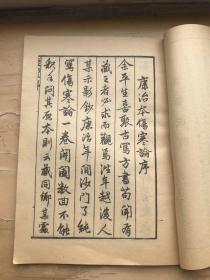 康治本傷寒論序
余平生喜聚古寫方書苟聞有
藏之者必求而觀焉往年越後人
某示影鈔康治年間沙門了純
寫傷寒論一卷開閱數四不能
釋手問其原本則云藏同鄉某處